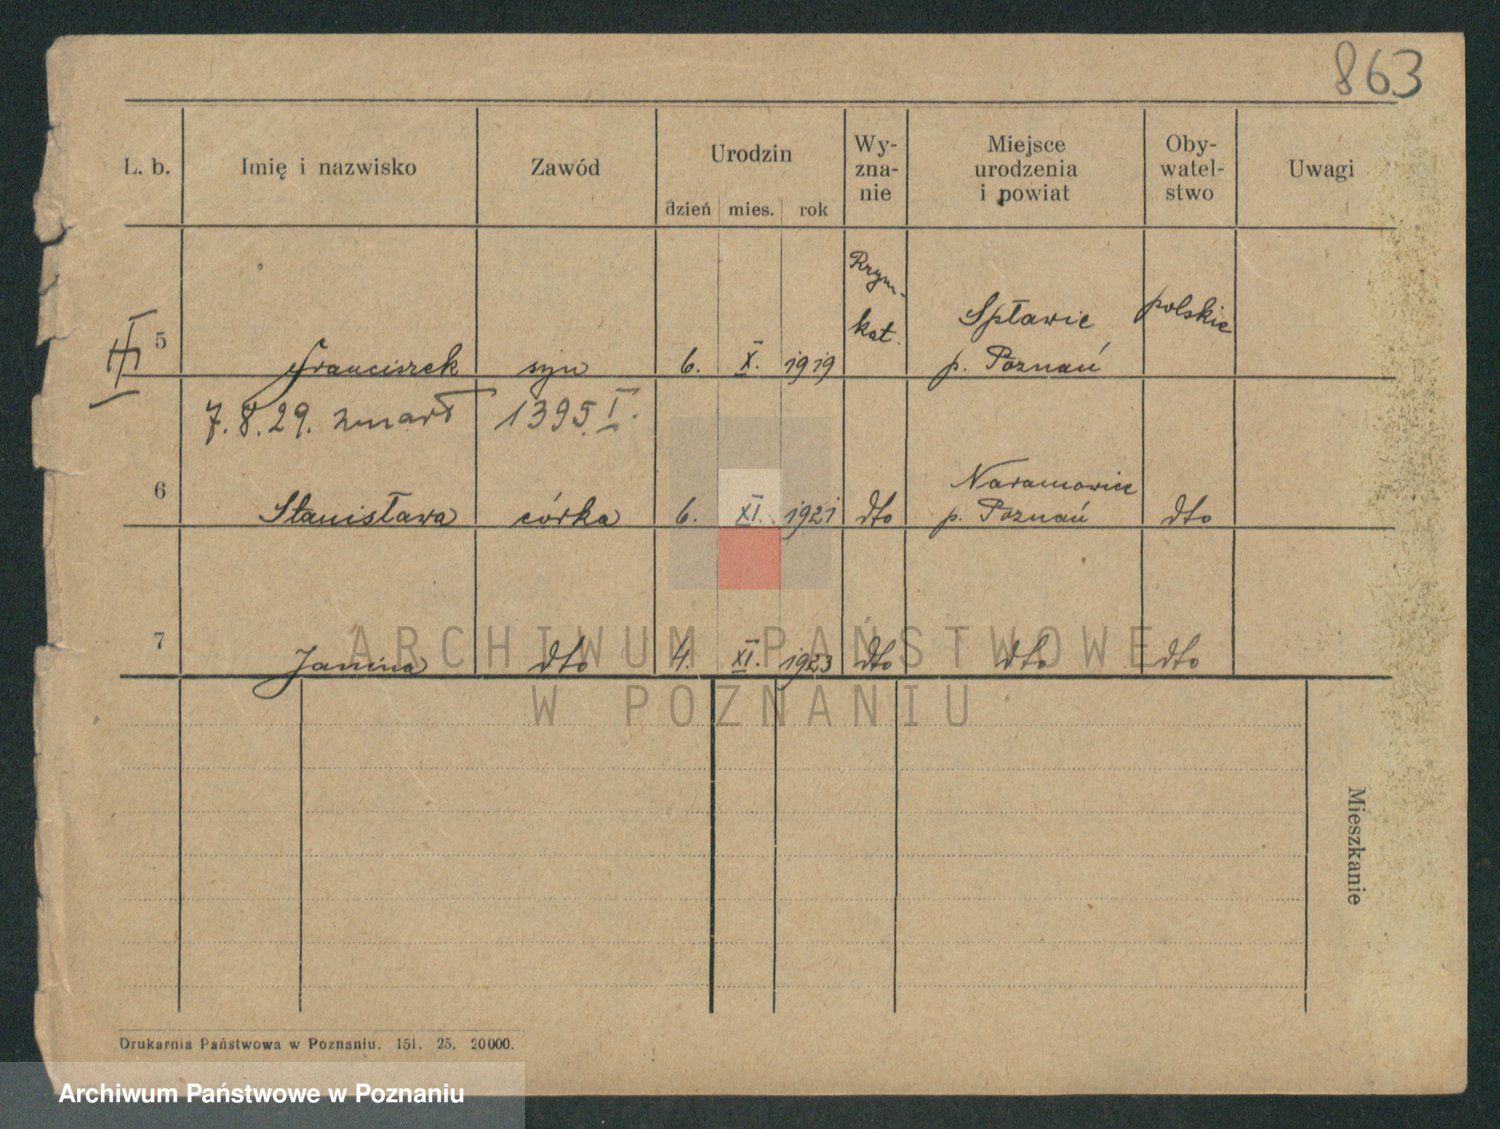 863
L. b. Imię i nazwisko Zawód Urodzin dzień mies. rok Wy-zna-nie Miejsce urodzenia i powiat Oby-watel-stwo Uwagi
5 Franciszek syn 6. X. 1919 Rzym.-kat. Spławie p. Poznań polskie
7.8.29. zmarł 1395 I.
6 Stanisława córka 6. XI. 1921 dto Naramowice p. Poznań dto
7 Janina dto 4. XI. 1923 dto dto dto
ARCHIWUM PAŃSTWOWE
W POZNANIU
Mieszkanie
Drukarnia Państwowa w Poznaniu. 151. 25. 20000.
Archiwum Państwowe w Poznaniu